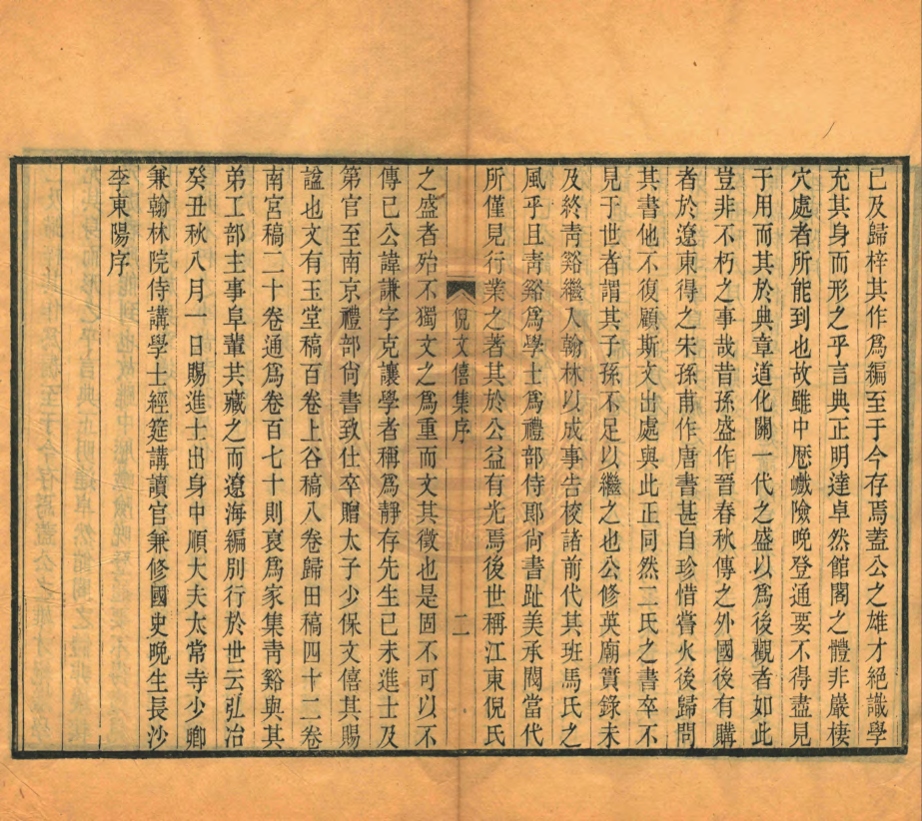 已及歸梓其作爲編至于今存焉蓋公之雄才絕識學
充其身而形之乎言典正明達卓然館閣之體非巖棲
穴處者所能到也故雖中歷巇險晚登通要不得盡見
于用而其於典章道化關一代之盛以爲後觀者如此
豈非不朽之事哉昔孫盛作晉春秋傳之外國後有購
者於遼東得之宋孫甫作唐書甚自珍惜嘗火後歸問
其書他不復顧斯文出處與此正同然二氏之書卒不
見于世者謂其子孫不足以繼之也公修英廟實錄未
及終青谿繼入翰林以成事告校諸前代其班馬氏之
風乎且青谿爲學士爲禮部侍郎尙書趾美承閥當代
所僅見行業之著其於公益有光焉後世稱江東倪氏
倪文僖集序
二
之盛者殆不獨文之爲重而文其徵也是固不可以不
傳已公諱謙字克讓學者稱爲靜存先生已未進士及
第官至南京禮部尙書致仕卒贈太子少保文僖其賜
諡也文有玉堂稿百卷上谷稿八卷歸田稿四十二卷
南宮稿二十卷通爲卷百七十則裒爲家集青谿與其
弟工部主事阜輩共藏之而遼海編別行於世云弘治
癸丑秋八月一日賜進士出身中順大夫太常寺少卿
兼翰林院侍講學士經筵講讀官兼修國史晚生長沙
李東陽序